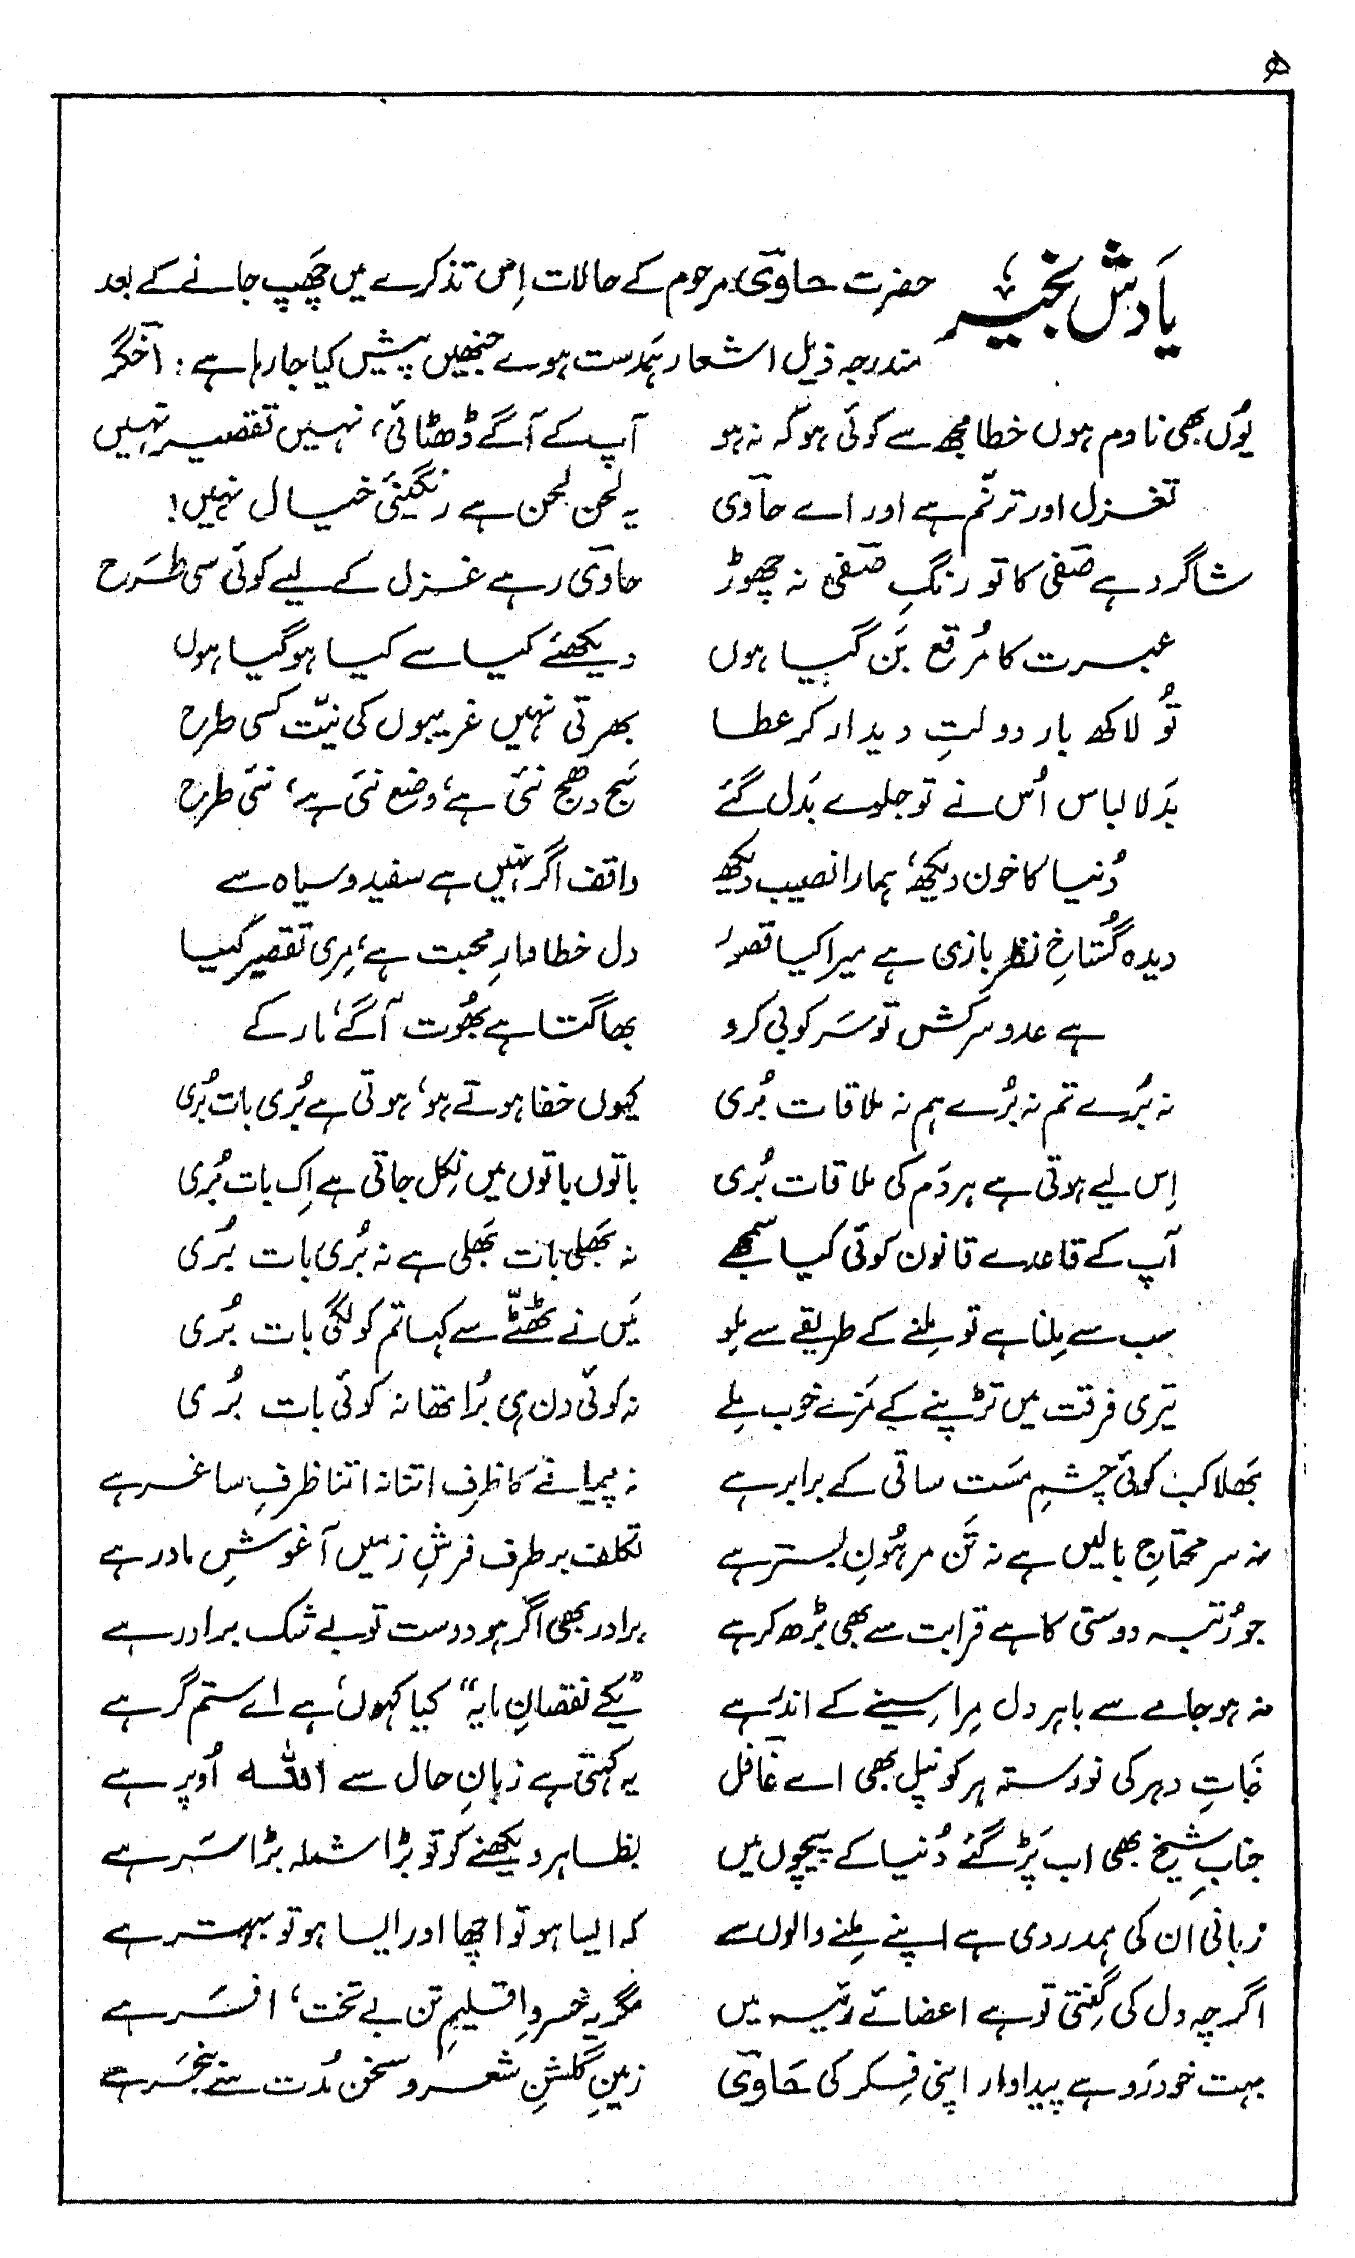 ھ
یادش بخیر حضرت حاوی مرحوم کے حالات اِس تذکرے میں چھَپ جانے کے بعد
مندرجہ ذیل اشعار ہمدست ہوے جنھیں پیش کیا جارہا ہے : اخگر
یوُں بھی نادم ہوں خطا مجھ سے کوئی ہو کہ نہ ہو آپ کے آگے ڈھٹائی، نہیں تقصیر نہیں
تغزل اور ترنّم ہے اور اے حاوی یہ لحن لحن ہے رنگینیِٔ خیال نہیں!
شاگرد ہے صفی کا تو رنگِ صفی نہ چھوڑ حاوی رہے غزل کے لیے کوئی سی طرَح
عبرت کا مُرقع بَن گیا ہوں دیکھئے کیا سے کیا ہوگیا ہوں
توُ لاکھ بار دولتِ دیدار کر عطا بھرتی نہیں غریبوں کی نیّت کسی طرح
بَدلا لباس اُس نے تو جلوے بَدل گئے سَج دھج نئی ہے، وضع نئی ہے، نئی طرح
دُنیا کا خون دیکھ، ہمارا نصیب دیکھ واقف اگر نہیں ہے سفید و سیاہ سے
دیدہ گستاخِ نظر بازی ہے میرا کیا قصوُر دل خطا وارِ محبت ہے، مِری تقصیر کیا
ہے عدو سرکش تو سَر کوبی کرو بھاگتا ہے بھُوت آگے، مار کے
نہ بُرے تم نہ بُرے ہم نہ ملاقات بُری کیوں خفا ہوتے ہو، ہوتی ہے بُری بات بُری
اِس لیے ہوتی ہے ہر دَم کی ملاقات بُری باتوں باتوں میں نِکل جاتی ہے اِک بات بُری
آپ کے قاعدے قانون کوئی کیا سمجھے نہ بھَلی بات بھَلی ہے نہ بُری بات بُری
سب سے مِلنا ہے تو مِلنے کے طریقے سے مِلو مَیں نے ٹھٹّے سے کہا تم کو لگی بات بُری
تیری فرقت میں تڑپنے کے مَزے خوب مِلے نہ کوئی دن ہی بُرا تھا نہ کوئی بات بُری
بھَلا کب کوئی چشمِ مَست ساقی کے برابر ہے نہ پیمانے کا ظرف اتنا نہ اتنا ظرفِ ساغر ہے
نہ سر محتاجِ بالیں ہے نہ تَن مرہُونِ بستر ہے تکلف بر طرف فرشِ زمیں آغوشِ مادر ہے
جو رُتبہ دوستی کا ہے قرابت سے بھی بڑھ کر ہے برادر بھی اگر ہو دوست تو بے شک برادر ہے
نہ ہو جامے سے باہر دل مِرا سِینے کے اندر ہے "یکے نقصانِ مایہ" کیا کہوں، ہے اے ستم گر ہے
نَباتِ دہر کی نورستہ ہر کونپل بھی اے غافل یہ کہتی ہے زبانِ حال سے اللہ اُوپر ہے
جنابِ شیخ بھی اب پَڑ گئے دُنیا کے پیچوں میں بظاہر دیکھنے کو تو بڑا شملہ بڑا سَر ہے
زبانی ان کی ہمدردی ہے اپنے مِلنے والوں سے کہ ایسا ہو تو اچھا اور ایسا ہو تو بہتر ہے
اگرچہ دل کی گِنتی تو ہے اعضائے رئیسہ میں مگر یہ خسروِ اقلیمِ تن بے تخت، افسَر ہے
بہت خودرَو ہے پیداوار اپنی فِکر کی حَاوی زمینِ گلشنِ شعر و سخن مُدت سے بنجَر ہے